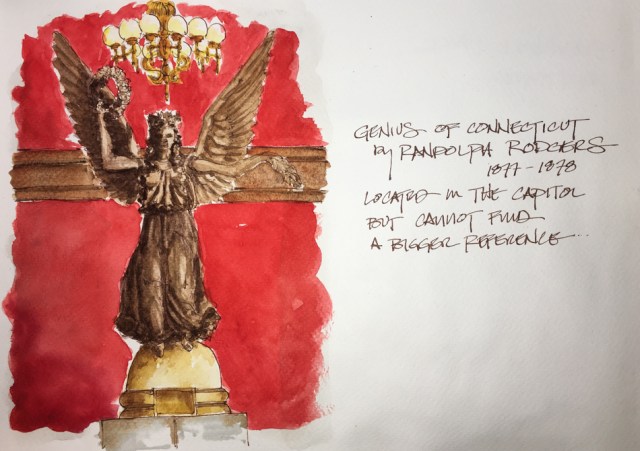 GENIUS OF CONNECTICUT
by RANDOLPH RODGERS
1877-1878
LOCATED IN THE CAPITOL
BUT CANNOT FIND
A BIGGER REFERENCE...